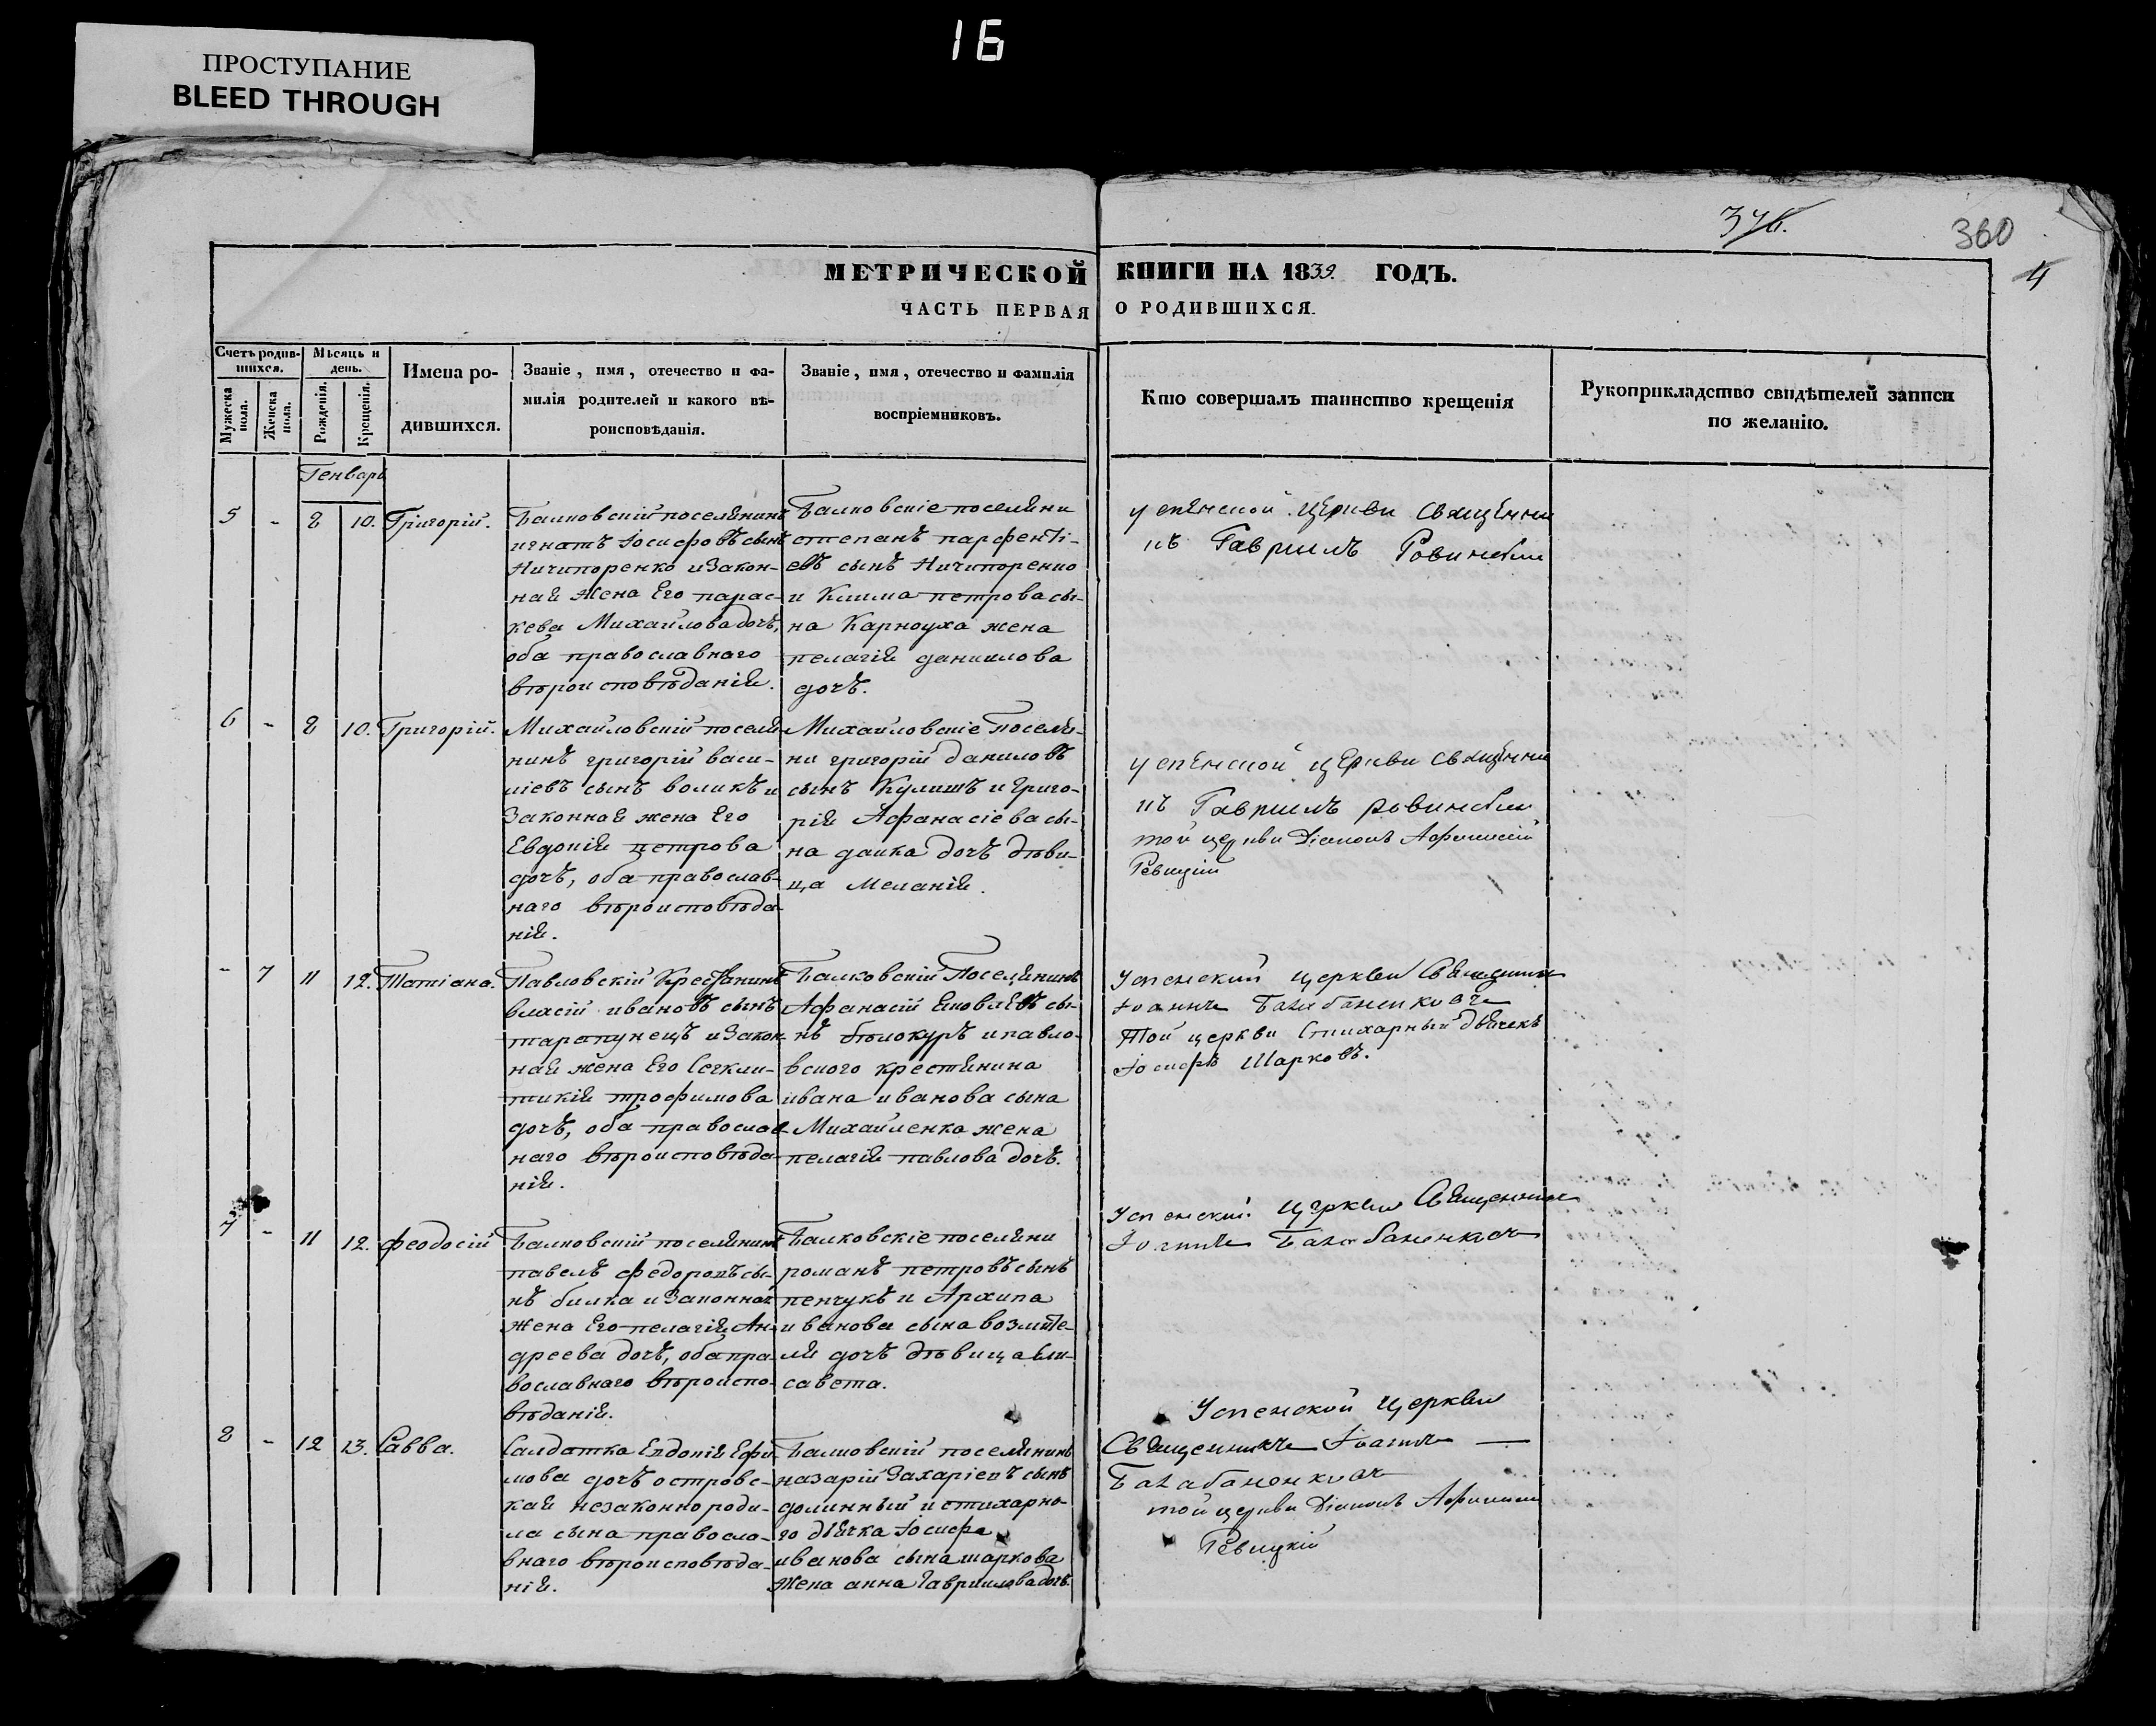 16
ПРОСТУПАНИЕ
BLEED THROUGH
376.
360
4
МЕТРИЧЕСКОЙ КНИГИ НА 1839. ГОДЪ.
ЧАСТЬ ПЕРВАЯ О РОДИВШИХСЯ.
Счетъ родив-
шихся.
Мужеска
пола.
Женска
пола.
Мѣсяцъ и
день.
Рожденія.
Крещенія.
Имена ро-
дившихся.
Званіе, имя, отечество и фа-
милія родителей и какого вѣ-
роисповѣданія.
Званіе, имя, отечество и фамилія
воспріемниковъ.
Кто совершалъ таинство крещенія
Рукоприкладство свидѣтелей записи
по желанію.
Генварь
5 - 8 10. Григорій.
Балковскій поселянинъ
игнатъ Іосифовъ сынъ
Ничипоренко и закон-
ная жена Его парас-
кева Михайлова дочь,
оба православнаго
вѣроисповѣданія.
Балковскіе поселяни
степанъ парфенті-
евъ сынъ Ничипоренко
и Клима петрова сы-
на Карноуха жена
пелагія даниилова
дочь.
успенской церкви священни
къ Гавриилъ Ровинскій
6 - 8 10. Григорій.
Михайловскій поселя-
нинъ григорій васи-
ліевъ сынъ воликъ и
Законная жена Его
Евдокія петрова
дочь, оба православ-
наго вѣроисповѣда-
нія.
Михайловскіе Поселя-
ни григорій даниловъ
сынъ Кулишъ и григо-
рія Афанасіева сы-
на дочь дѣви-
ца Меланія.
успенской церкви священни
къ Гавриилъ ровинскій
той церкви Діаконъ Афанасій
Ревицкій
- 7 11 12. Татіана.
Павловскій Крестянинъ
власій ивановъ сынъ
тарапунецъ и Закон-
ная жена Его
трофимова
дочь, оба православ-
наго вѣроисповѣда-
нія.
Балковскій Поселянинъ
Афанасій сы-
нъ бѣлокуръ и павло-
вского крестянина
ивана иванова сына
Михайленка жена
пелагія павлова дочь.
Успенской церкви Священникъ
Іоаннъ
Той церкви Стихарный дьячекъ
Іосифъ Шарковъ.
7 - 11 12. феодосій
Балковскій поселянинъ
павелъ федоровъ сы-
нъ билка и Законная
жена Его пелагія Ан-
дреева дочь, оба пра-
вославнаго вѣроиспо-
вѣданія.
Балковскіе поселяни
романъ петровъ сынъ
пенчукъ и Архипа
иванова сына
дочь дѣвица Ели-
савета.
Успенской церкви Священникъ
Іоаннъ
8 - 12 13. Савва.
Салдатка Евдокія Ефи-
мова дочь островс-
кая незаконно роди-
ла сына правосла-
внаго вѣроисповѣда-
нія.
Балковскій поселянинъ
назарій Захаріевъ сынъ
долинный и стихарно-
го дьячка Іосифа
иванова сына шаркова
жена анна Гавриилова дочь.
Успенской церкви
Священникъ Іоаннъ
той церкви Діаконъ Афанасій
Ревицкій